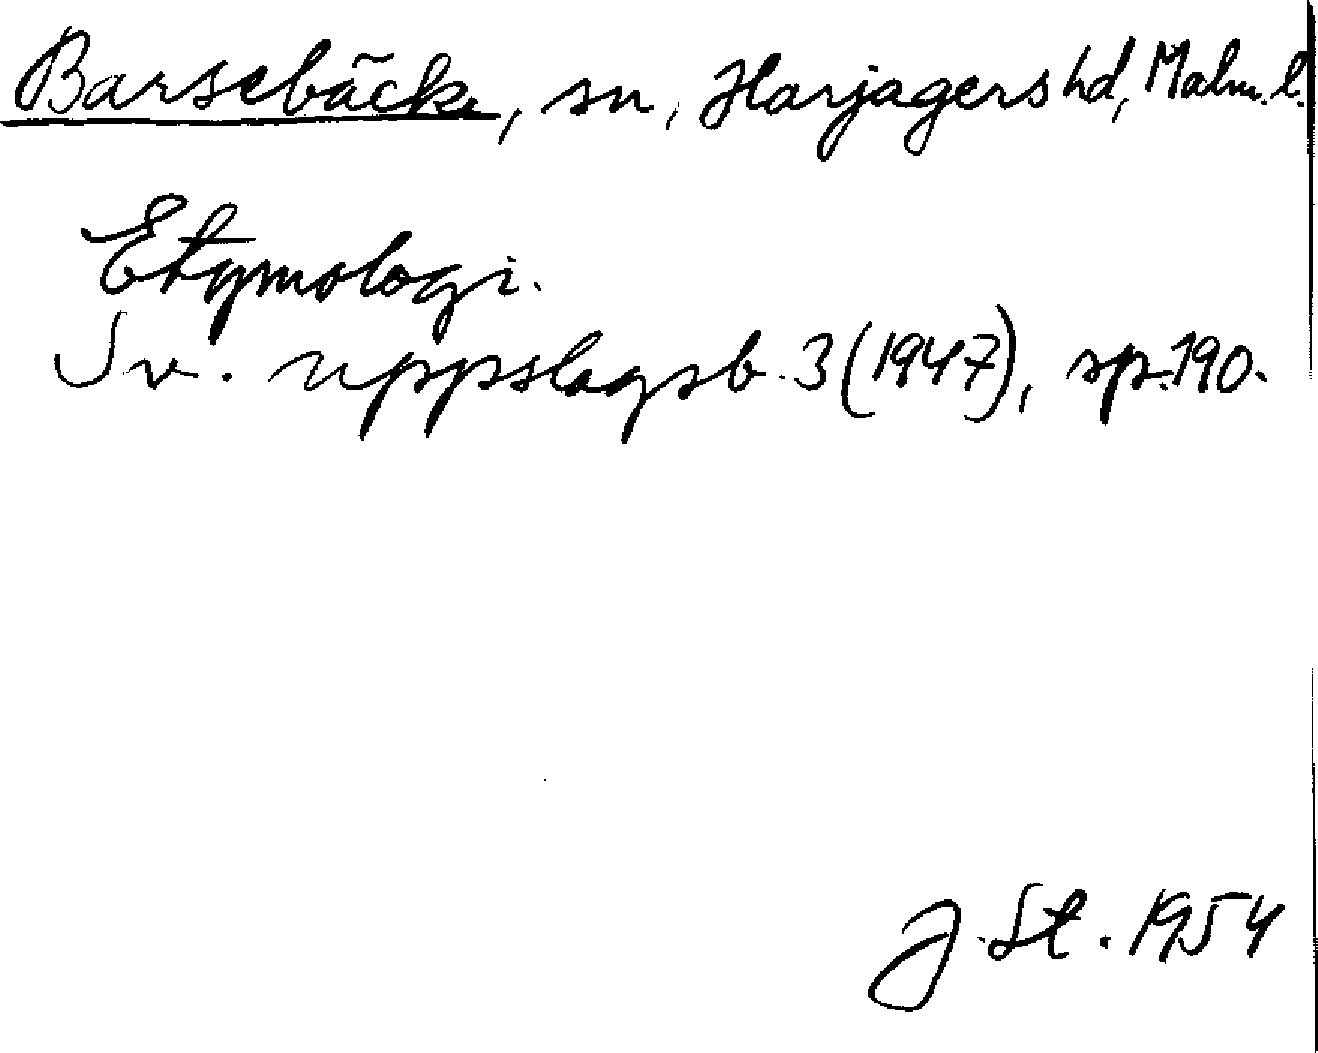 Barsebäck, sn, Harjagers hd, Malm. l.
Etymologi.
Sv. uppslagsb. 3 (1947), sp. 190.
J. St. 1954